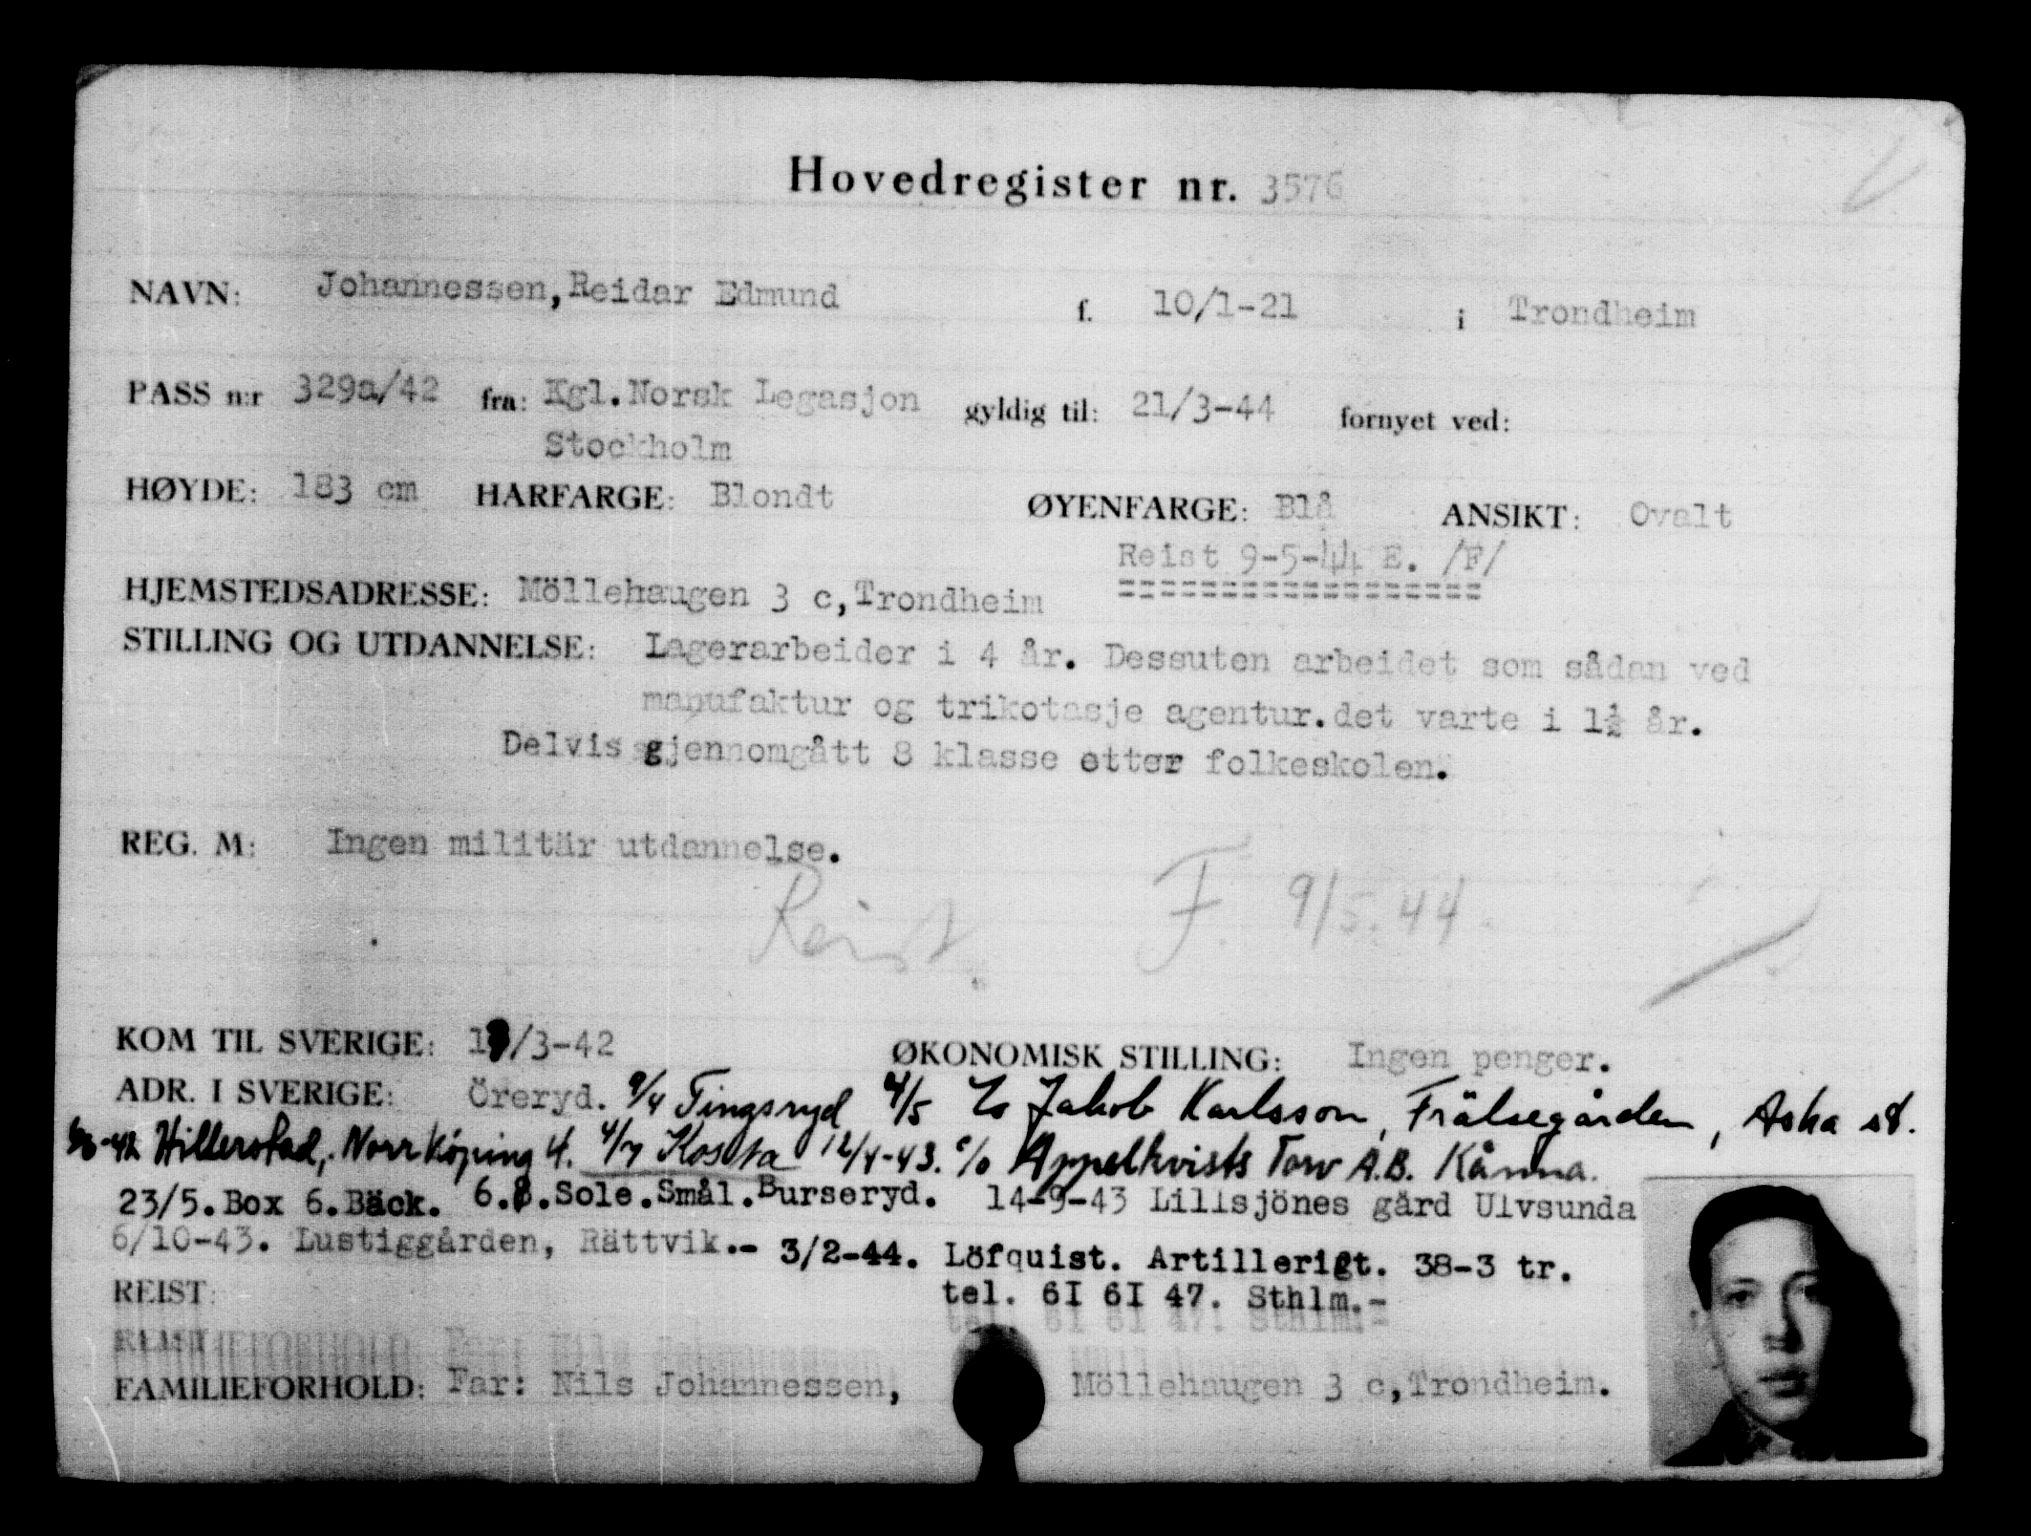 Hovedregister nr. 3576
NAVN: Johannessen, Reidar Edmund f. 10/1-21 i Trondheim
PASS n:r 329a/42 fra: Kgl. Norsk Legasjon gyldig til: 21/3-44 fornyet ved:
Stockholm
HØYDE: 183 cm HARFARGE: Blondt ØYENFARGE: Blå ANSIKT: Ovalt
Reist 9-5-44 E. /F/
HJEMSTEDSADRESSE: Möllehaugen 3 c, Trondheim
STILLING OG UTDANNELSE: Lagerarbeider i 4 år. Dessuten arbeidet som sådan ved
manufaktur og trikotasje agentur. det varte i 1½ år.
Delvis gjennomgått 8 klasse etter folkeskolen.
REG. M: Ingen militär utdannelse.
Reist. F. 9/5.44
KOM TIL SVERIGE: /3-42 ØKONOMISK STILLING: Ingen penger.
ADR. I SVERIGE: Öreryd. 9/4 Tingsryd 4/5 c/o Jakob Karlsson, Frälsegården, Aska st.
-42 Hillerstad, Norrköping 4. 4/7 Kosta 12/4-43. c/o Appelkvists Torv A.B. Kånna.
23/5. Box 6. Bäck. 6.8. Sole. Smål. Burseryd. 14-9-43 Lillsjönes gård Ulvsunda
6/10-43. Lustiggården, Rättvik.- 3/2-44. Löfquist. Artillerigt. 38-3 tr.
REIST: tel. 6I 6I 47. Sthlm.-
FAMILIEFORHOLD: Far: Nils Johannessen, Möllehaugen 3 c, Trondheim.